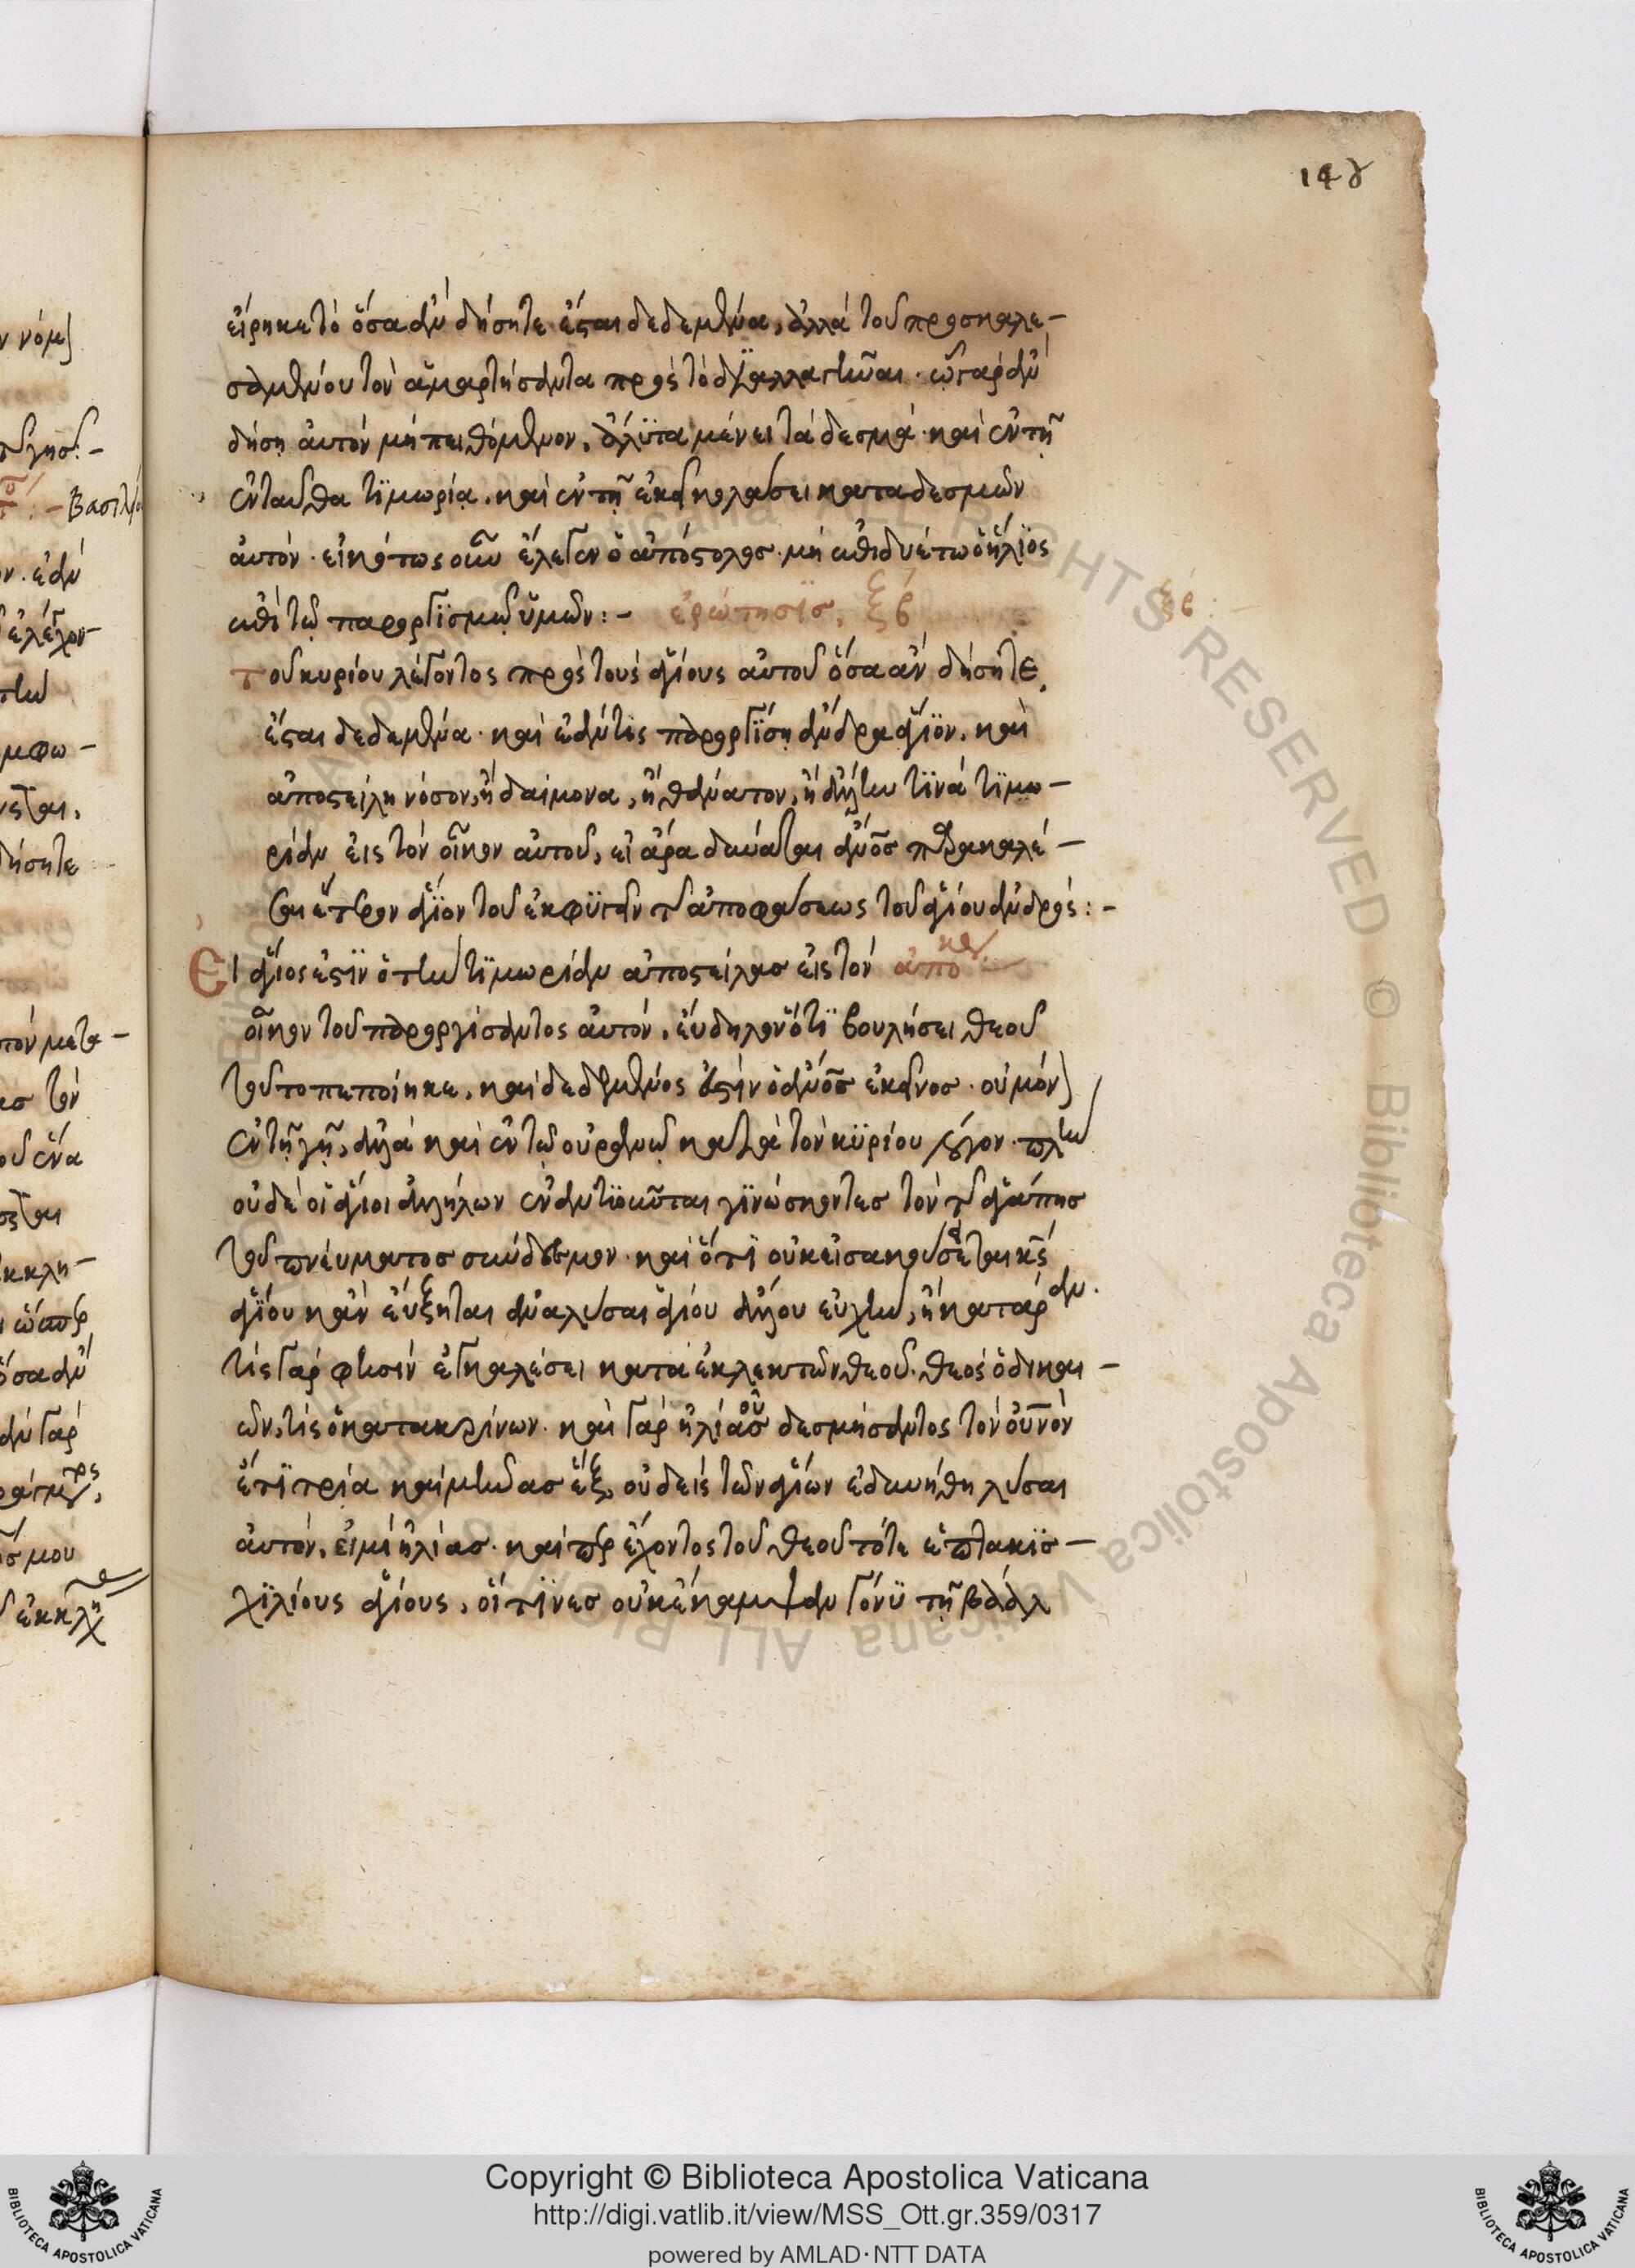 147
εἴρηκε τὸ ὅσα ἂν δήσητε ἔσται δεδεμένα, ἀλλὰ τοῦ προσκαλε-
σαμένου τὸν ἁμαρτήσαντα πρὸς τὸ διαλλαγῆναι. ὡς γὰρ ἂν
δήση αὐτὸν μὴ πειθόμενον, ἄλϋτα μένει τὰ δεσμά· καὶ ἐν τῆ
ἐνταῦθα τϊμωρία, καὶ ἐν τῆ ἐκεῖ κολάσει καταδεσμῶν
αὐτόν· εἰκότως οὖν ἔλεγεν ὁ ἀπόστολος· μὴ ἐπιδυέτω ὁ ἥλϊος
ἐπὶ τῶ παροργϊσμῶ ὑμῶν:- ἐρώτησϊς, ξβ
τοῦ κυρίου λέγοντος πρὸς τοὺς ἁγίους αὐτοῦ ὅσα ἂν δήσητε,
ἔσται δεδεμένα· καὶ ἐάν τις παροργΐση ἄνδρα ἅγϊον, καὶ
ἀποστείλη νόσον, ἢ δαίμονα, ἢ θάνατον, ἢ ἄλλην τϊνὰ τϊμω-
ρίαν εἰς τὸν οἶκον αὐτοῦ, εἰ ἄρα δύναται ἄνος παρακαλέ-
σαι ἕτερον ἅγϊον τοῦ ἐκφϋγεῖν τῆς ἀποφάσεως τοῦ ἁγίου ἀνδρός:-
Εἰ ἅγιος ἐστϊν ὁ τὴν τϊμωρίαν ἀποστείλας εἰς τὸν ἀπόκρ
οἶκον τοῦ παροργίσαντος αὐτόν, εὔδηλον ὅτϊ βουλήσει θεοῦ
τοῦτο πεποίηκε, καὶ δεδεμένος ἐστὶν ὁ ἄνος ἐκεῖνος· οὐ μόν
ἐν τῆ γῆ, ἀλλὰ καὶ ἐν τῶ οὐρανῶ κατὰ τὸν κϋρίου λόγον· πλὴν
οὐδὲ οἱ ἅγιοι ἀλλήλων ἐναντϊοῦνται γϊνώσκοντες τὸν τῆς ἀγάπης
τοῦ πνεύματος σύνδεσμον· καὶ ὅτϊ οὐκ εἰσακούσεται κς
ἁγΐου κἂν εὔξηται ἀναλῦσαι ἁγίου ἄλλου εὐχὴν, ἢ κατάραν.
τίς γάρ φησὶν ἐγκαλέσει κατὰ ἐκλεκτῶν θεοῦ· θεὸς ὁ δικαι-
ῶν, τίς ὁ κατακρίνων· καὶ γὰρ ἠλίαοῦ δεσμήσαντος τὸν οὐνὸν
ἔτϊ τρία καὶ μῆνας ἕξ, οὐδεὶς τῶν ἁγίων ἐδυνήθη λῦσαι
αὐτόν, εἰ μὴ ἠλίας· καίπερ ἔχοντος τοῦ θεοῦ τότε ἑπτακϊσ-
χϊλίους ἁγίους, οἵ τϊνες οὐκ ἔκαμψαν γόνϋ τῆ βάαλ
Copyright © Biblioteca Apostolica Vaticana
http://digi.vatlib.it/view/MSS_Ott.gr.359/0317
powered by AMLAD·NTT DATA